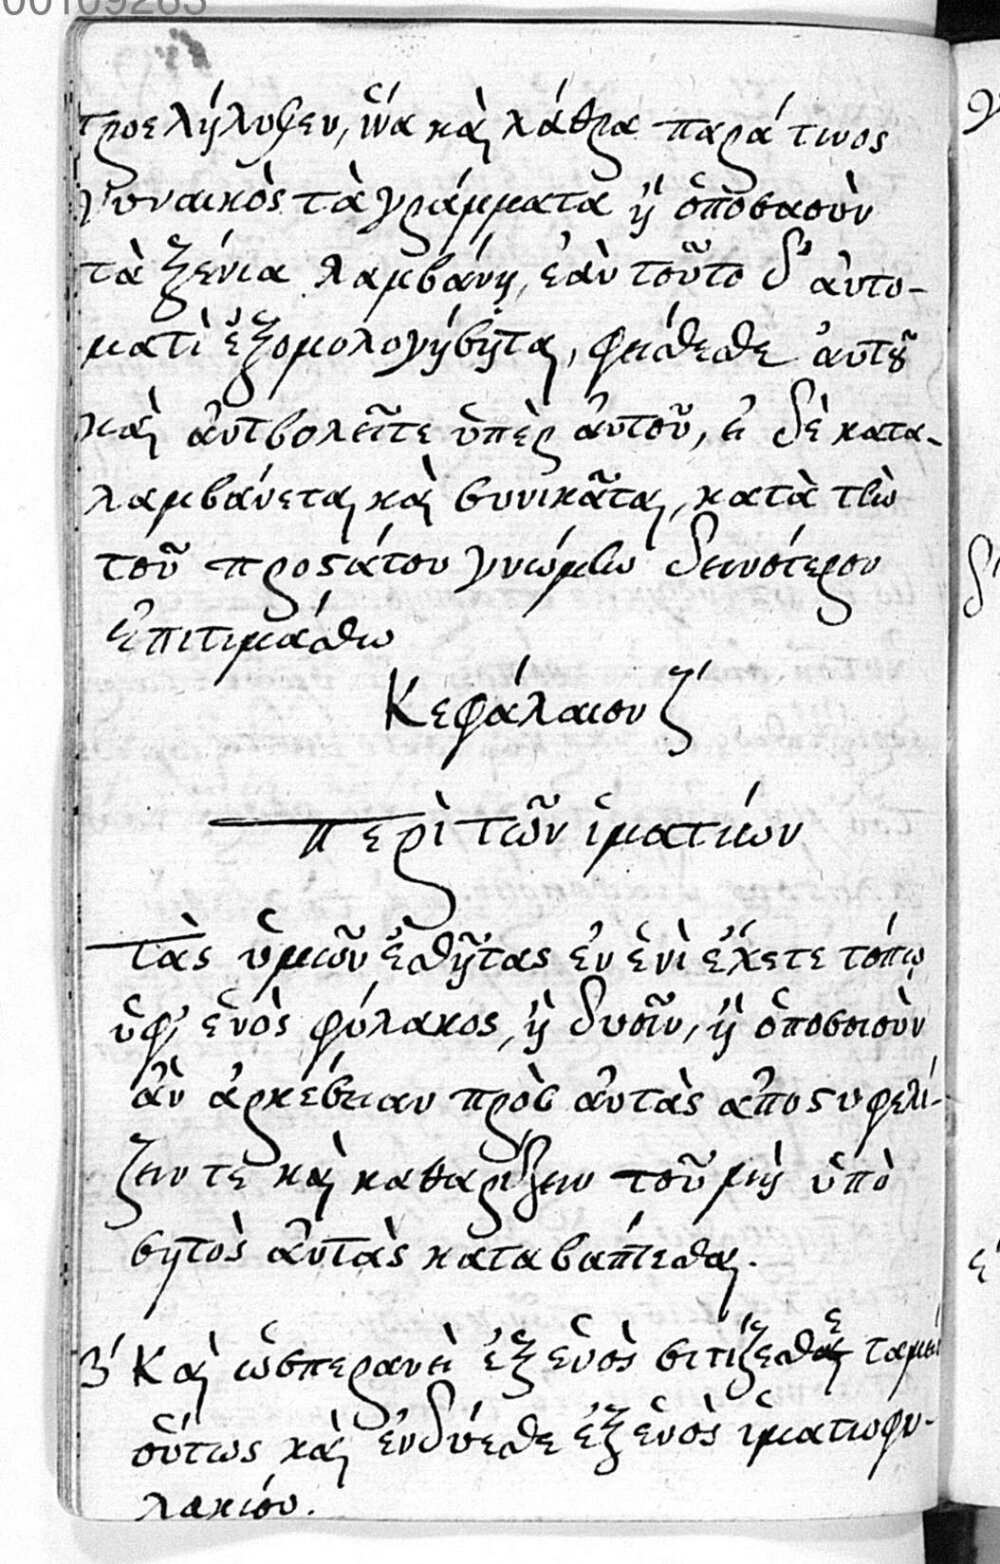 00109283
προελήλυθεν, ἵνα καὶ λάθρα παρά τινος
γυναικὸς τὰ γράμματα ἢ ὁποσασοὺν
τὰ ξένια λαμβάνῃ, ἐὰν τοῦτο δ' ἀυτο-
ματὶ ἐξομολογήσηται, φείσθεσθε ἀυτοῦ
καὶ ἀντιβολεῖτε ὑπὲρ ἀυτοῦ, ἐι δὲ κατα-
λαμβάνεται καὶ συνικᾶται, κατὰ τὴν
τοῦ προστάτου γνώμην δεινότερον
ἐπιτιμάσθω
Κεφάλαιον ζ'
Περὶ τῶν ἱματίων
Τὰς ὑμῶν ἐσθῆτας ἐν ἑνὶ ἔχετε τόπῳ
ὑφ' ἑνὸς φύλακος, ἢ δυσῖν, ἢ ὁποσοισοὺν
ἂν ἀρκέσειαν πρὸς ἀυτὰς ἀποστυφελί-
ζειν τε καὶ καθαρίζειν τοῦ μὴ ὑπὸ
σητὸς ἀυτὰς καταβάπτεσθαι.
β' Καὶ ὡσπερανεὶ ἐξ ἑνὸς σιτίζεσθε ταμεί
οὕτως καὶ ἐνδύεσθε ἐξ ἑνὸς ἱματιοφυ-
λακίου.